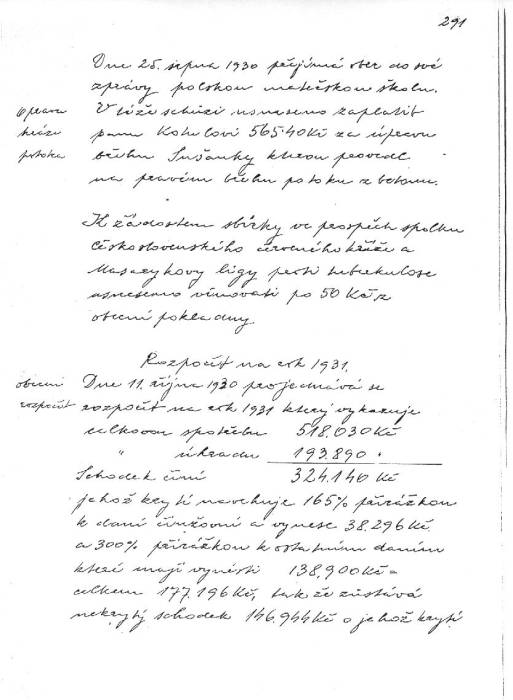 291
Dne 25. srpna 1930 přejímá obec do své
zprávy polskou mateřskou školu.
V téže schůzi usneseno zaplatit
panu Kotulovi 565.40 Kč za úpravu
břehu Sušanky kterou provedl
na pravém břehu potoku z betonu.
Oprava
hráze
potoka
K žádostem sbírky ve prospěch spolku
Československého červeného kříže a
Masarykovy ligy proti tuberkulose
usneseno věnovati po 50 Kč z
obecní pokladny
Rozpočet na rok 1931.
obecní
rozpočet
Dne 11. října 1930 projednává se
rozpočet na rok 1931 který vykazuje
celkovou spotřebu 518.030 Kč
" úhradu 193.890 "
Schodek činí 324.140 Kč
jehož krytí navrhuje 165% přirážkou
k dani činžovní a vynese 38.296 Kč
a 300% přirážkou k ostatním daním
které mají vynésti 138.900 Kč =
celkem 177.196 Kč, tak že zůstává
nekrytý schodek 146.944 Kč o jehož krytí